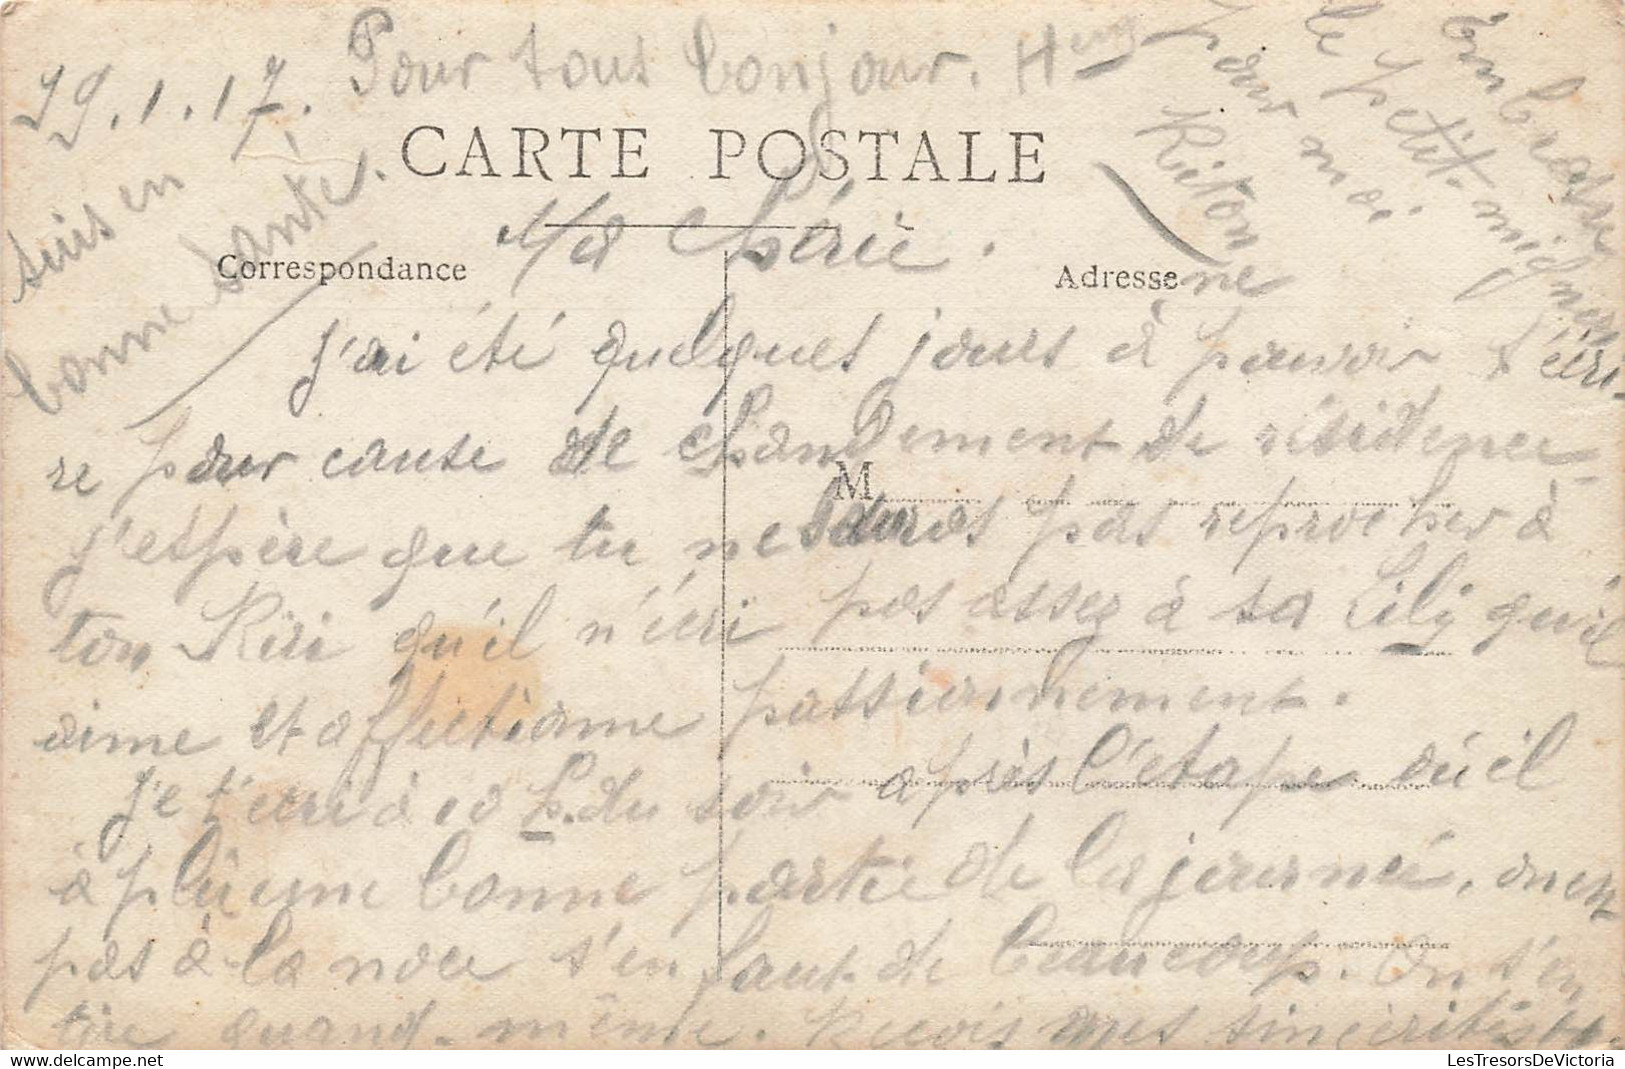 29.1.17. Pour tous bonjour. Hený
suis en
bonne santé.
Embrasse
le petit mignon
pour moi
Ritonne
CARTE POSTALE
Ma Chérie.
Correspondance
Adresse
j'ai été quelques jours à pouvoir t'écri-
re pour cause de chandement de résidence
M
j'espère que tu ne sauras pas reprocher à
ton Riri qu'il n'écri pas assez à sa Lily qu'il
aime et affectionne passionnement.
Je t'écri à 10 h. du soir après l'étape où il
à plu une bonne partie de la journée, on est
pas à la noce s'en faut de beaucoup. On s'en
tire quand-même. Recois mes sincérités
LesTresorsDeVictoria